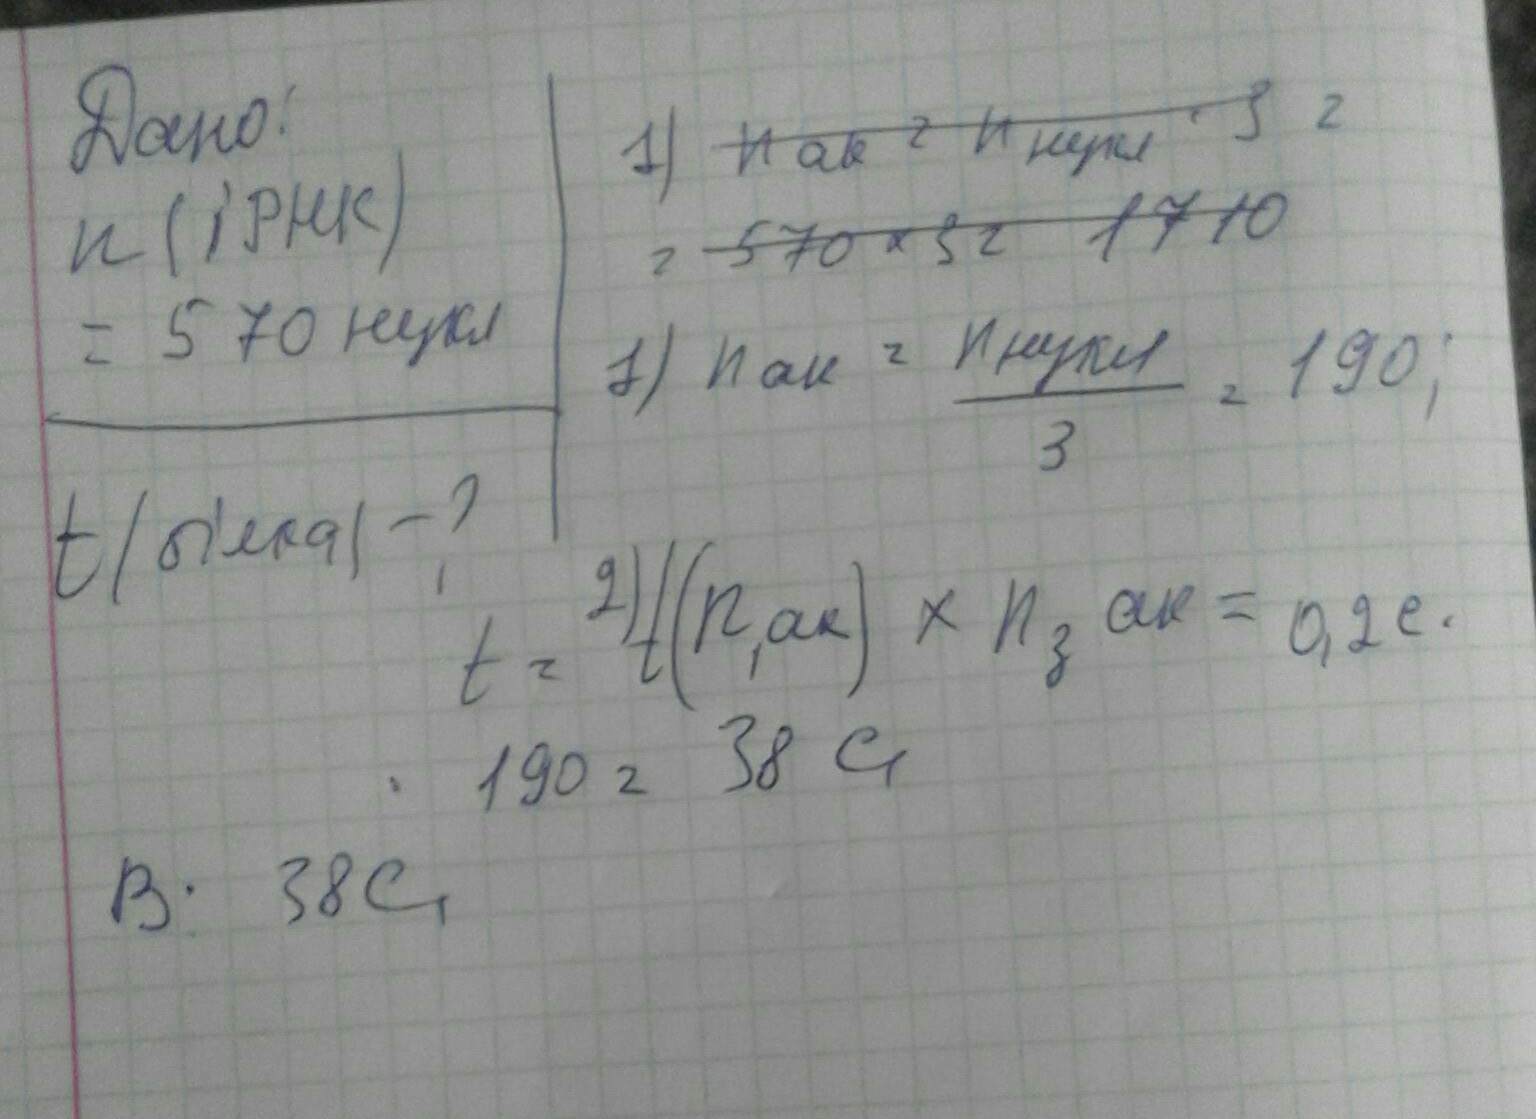 Дано:
n (іРНК)
= 570 нукл
t (білка) - ?
1) n ак = n нукл · 3 =
= 570 × 3 = 1710
1) n ак = n нукл / 3 = 190;
2) t = t (n₁ ак) × n₃ ак = 0,2 с.
· 190 = 38 с,
В: 38 с,